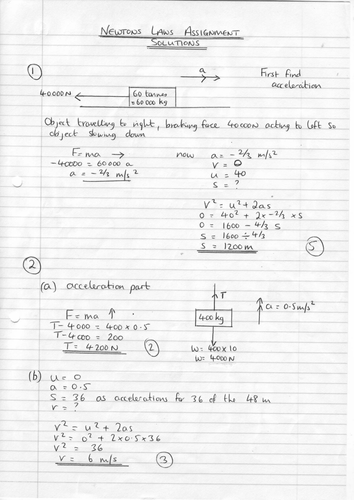 NEWTONS LAWS ASSIGNMENT
SOLUTIONS
1
a
First find
acceleration
40000N
60 tonnes
= 60000 kg
Object travelling to right, braking force 40000N acting to left so
object slowing down
F = ma →
-40000 = 60000 a
a = -2/3 m/s²
now a = -2/3 m/s²
v = 0
u = 40
s = ?
v² = u² + 2as
0 = 40² + 2 x -2/3 x s
0 = 1600 - 4/3 s
s = 1600 ÷ 4/3
s = 1200m
5
2
(a) acceleration part
F = ma ↑
T - 4000 = 400 x 0.5
T - 4000 = 200
T = 4200N
2
T
400kg
W = 400x10
W = 4000N
a = 0.5m/s²
(b) u = 0
a = 0.5
s = 36 as accelerations for 36 of the 48 m
v = ?
v² = u² + 2as
v² = 0² + 2 x 0.5 x 36
v² = 36
v = 6 m/s
3